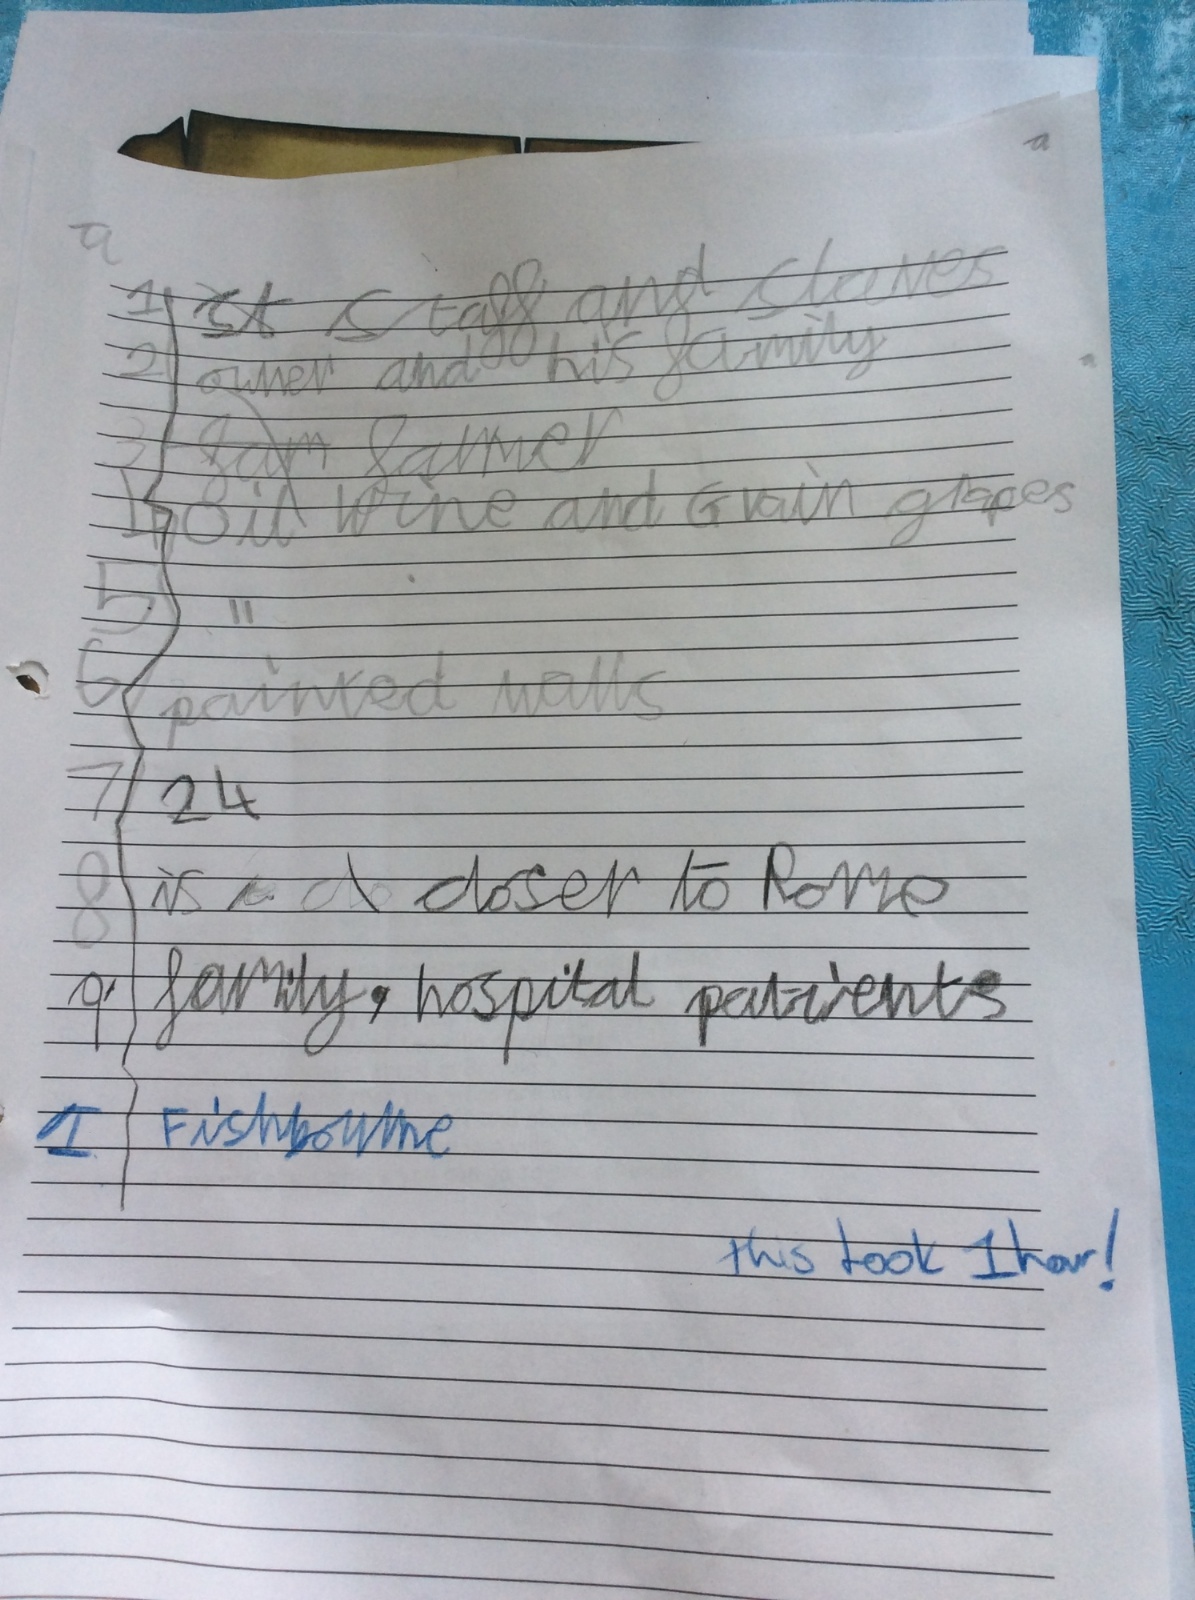 a
a
1 st staff and slaves
2 owner and his family
a
3 farm farmer
4 Oil wine and Grain grapes
5 "
6 painted walls
7 24
8 is a closer to Rome
9 family, hospital patients
1 Fishbourne
this took 1 hour!